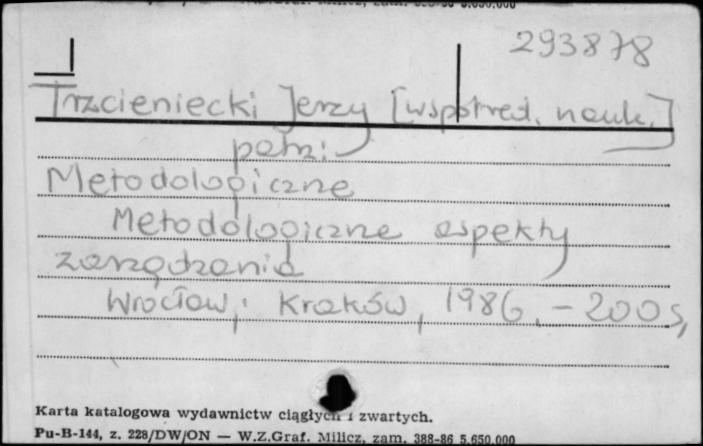 293878
Trzcieniecki Jerzy [współred. nauk.]
patrz:
Metodologiczne
Metodologiczne aspekty
zarządzania
Wrocław; Kraków, 1986. - 200 s,
Karta katalogowa wydawnictw ciągłych i zwartych.
Pu-B-144, z. 228/DW/ON — W.Z.Graf. Milicz, zam. 388-86 5.650.000